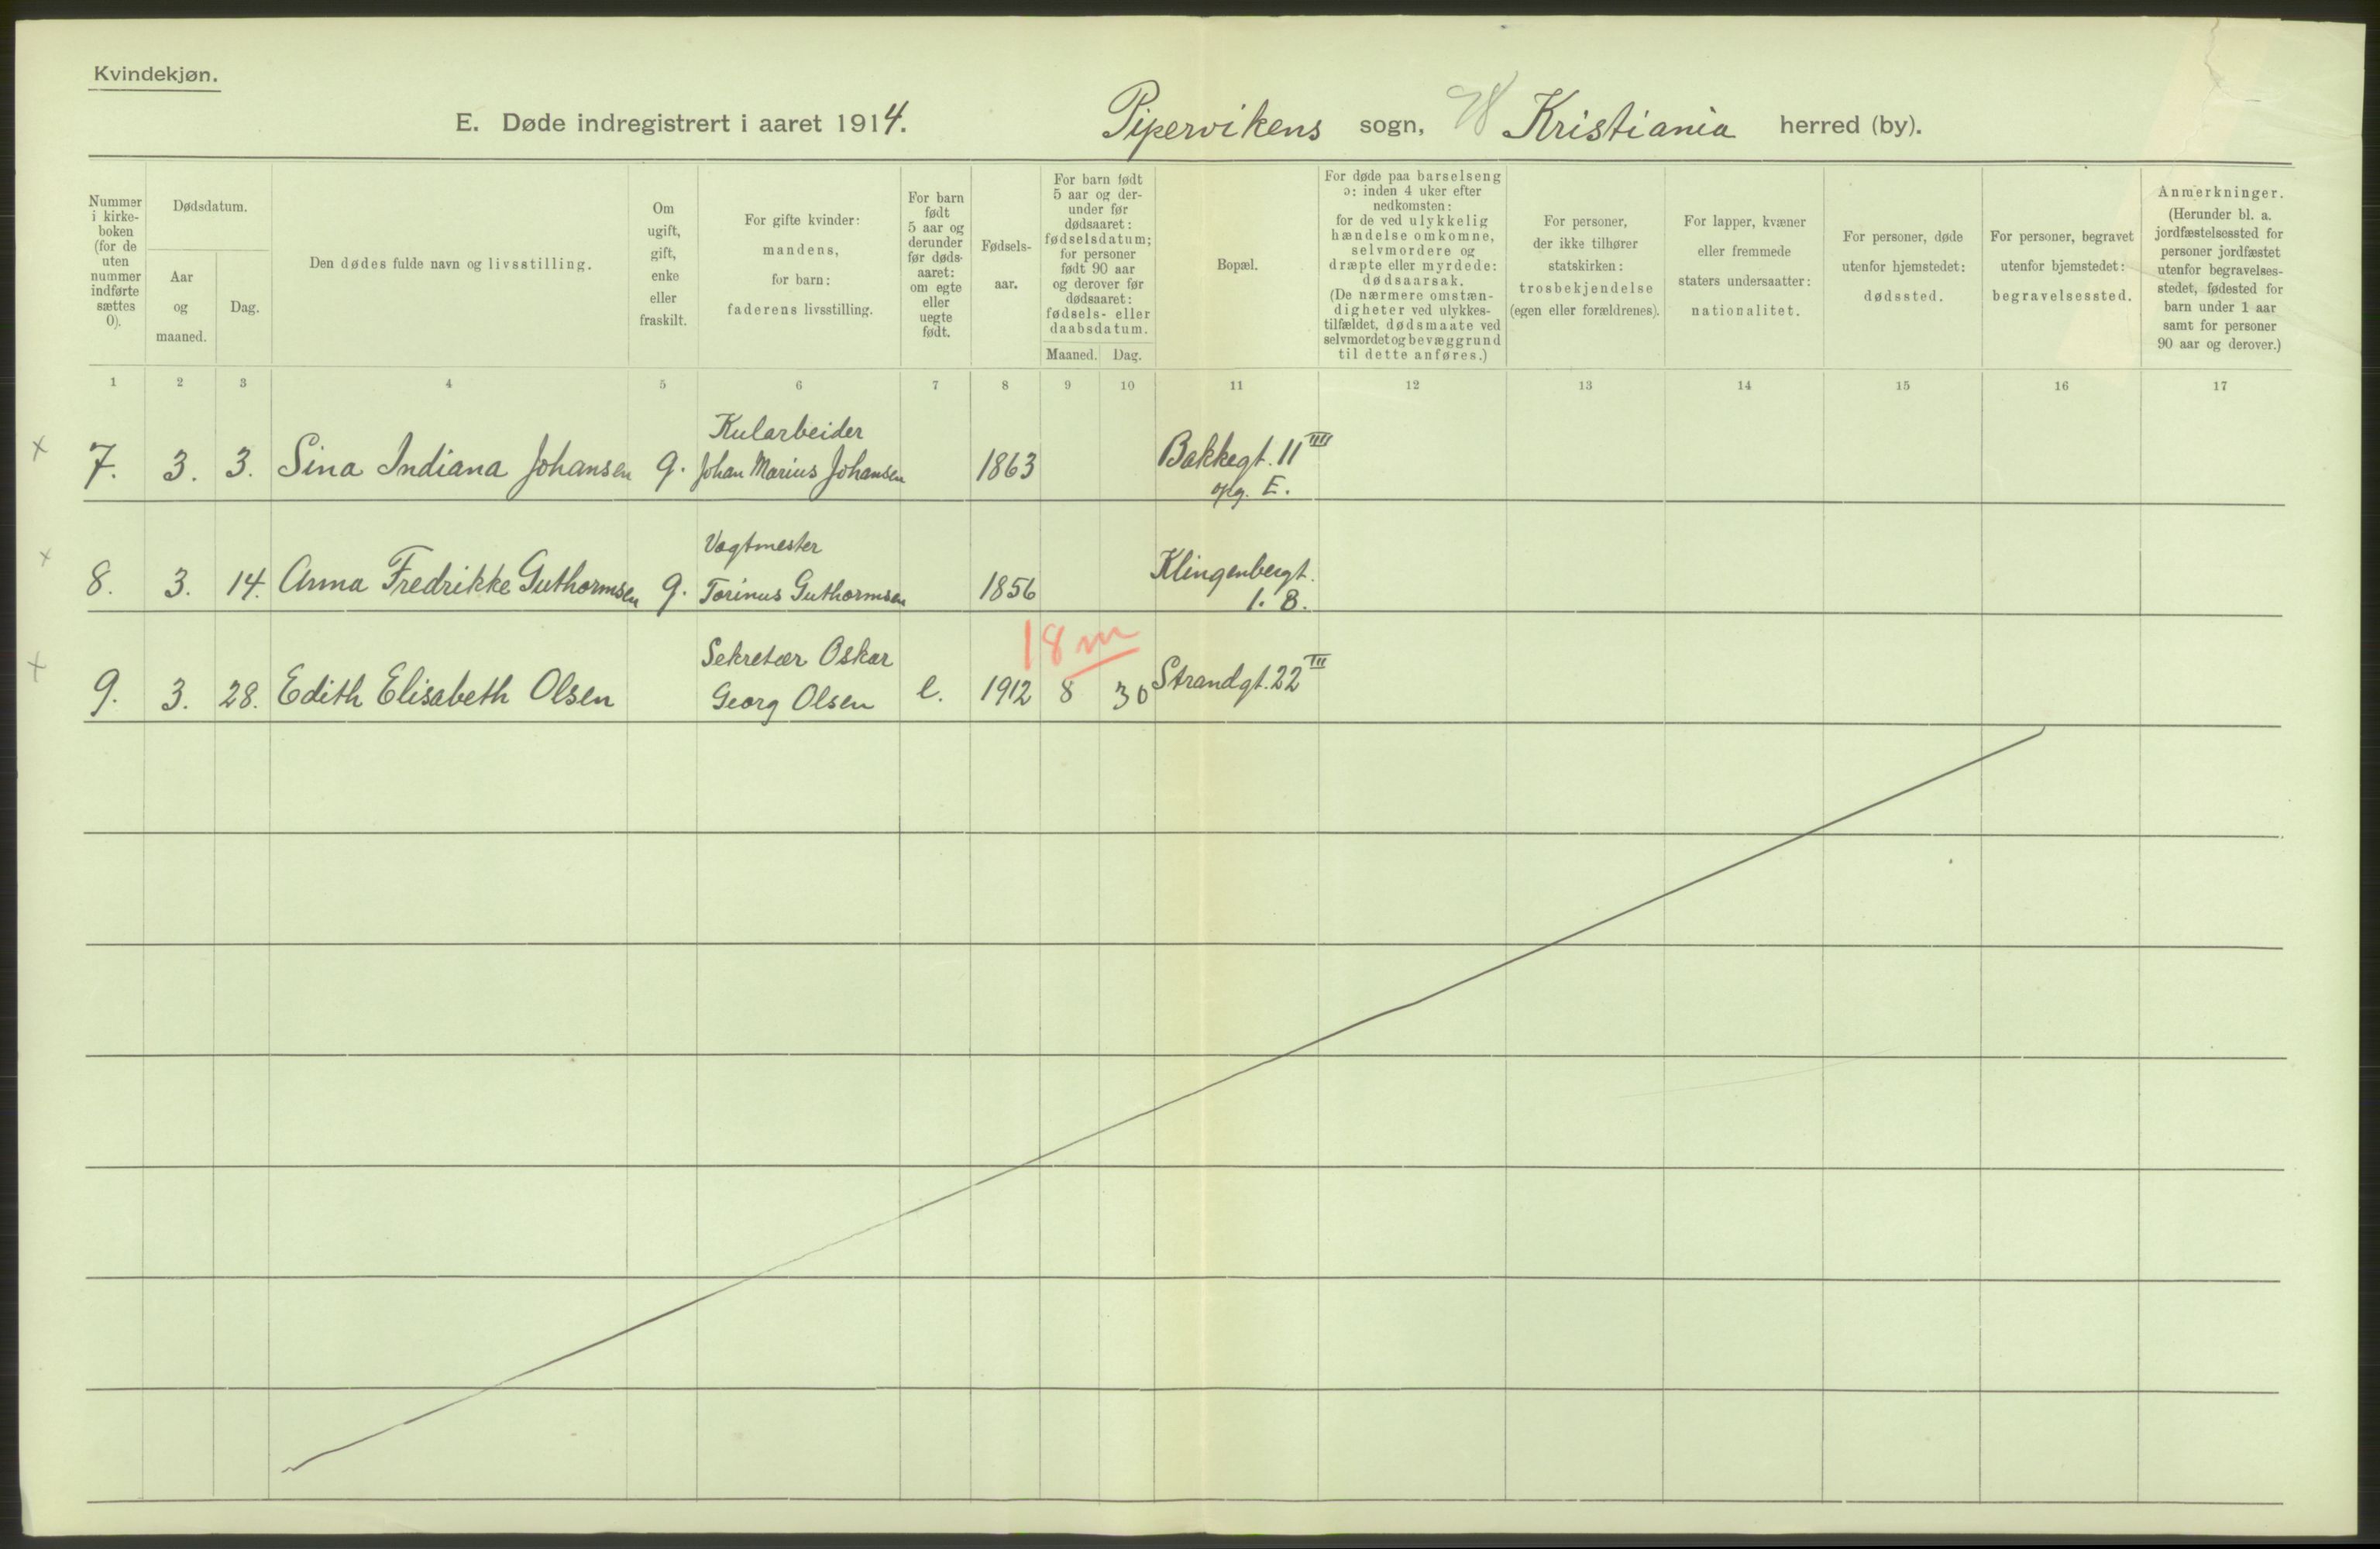 Kvindekjøn.
E. Døde indregistrert i aaret 1914.
Pipervikens sogn, Kristiania herred (by).
Nummer
i kirke-
boken
(for de
uten
nummer
indførte
sættes
0).
Dødsdatum.
Aar
og
maaned.
Dag.
Den dødes fulde navn og livsstilling.
Om
ugift,
gift,
enke
eller
fraskilt.
For gifte kvinder:
mandens,
for barn:
faderens livsstilling.
For barn
født
5 aar og
derunder
før døds-
aaret:
om egte
eller
uegte
født.
Fødsels-
aar.
For barn født
5 aar og der-
under før
dødsaaret:
fødselsdatum;
for personer
født 90 aar
og derover før
dødsaaret:
fødsels- eller
daabsdatum.
Maaned. Dag.
Bopæl.
For døde paa barselseng
ɔ: inden 4 uker efter
nedkomsten:
for de ved ulykkelig
hændelse omkomne,
selvmordere og
dræpte eller myrdede:
dødsaarsak.
(De nærmere omstæn-
digheter ved ulykkes-
tilfældet, dødsmaate ved
selvmordet og bevæggrund
til dette anføres.)
For personer,
der ikke tilhører
statskirken:
trosbekjendelse
(egen eller forældrenes).
For lapper, kvæner
eller fremmede
staters undersaatter:
nationalitet.
For personer, døde
utenfor hjemstedet:
dødssted.
For personer, begravet
utenfor bjemstedet:
begravelsessted.
Anmerkninger.
(Herunder bl. a.
jordfæstelsessted for
personer jordfæstet
utenfor begravelses-
stedet, fødested for
barn under 1 aar
samt for personer
90 aar og derover.)
1 2 3 4 5 6 7 8 9 10 11 12 13 14 15 16 17
Kularbeider
× 7. 3. 3. Sina Indiana Johansen g. Johan Marius Johansen 1863 Bakkegt. 11 III
opg. E.
Vagtmester
× 8. 3. 14. Anna Fredrikke Guthormsen g. Torinus Guthormsen 1856 Klingenbergt.
1. B.
18 m
Sekretær Oskar
× 9. 3. 28. Edith Elisabeth Olsen Georg Olsen e. 1912 8 30 Strandgt. 22 III